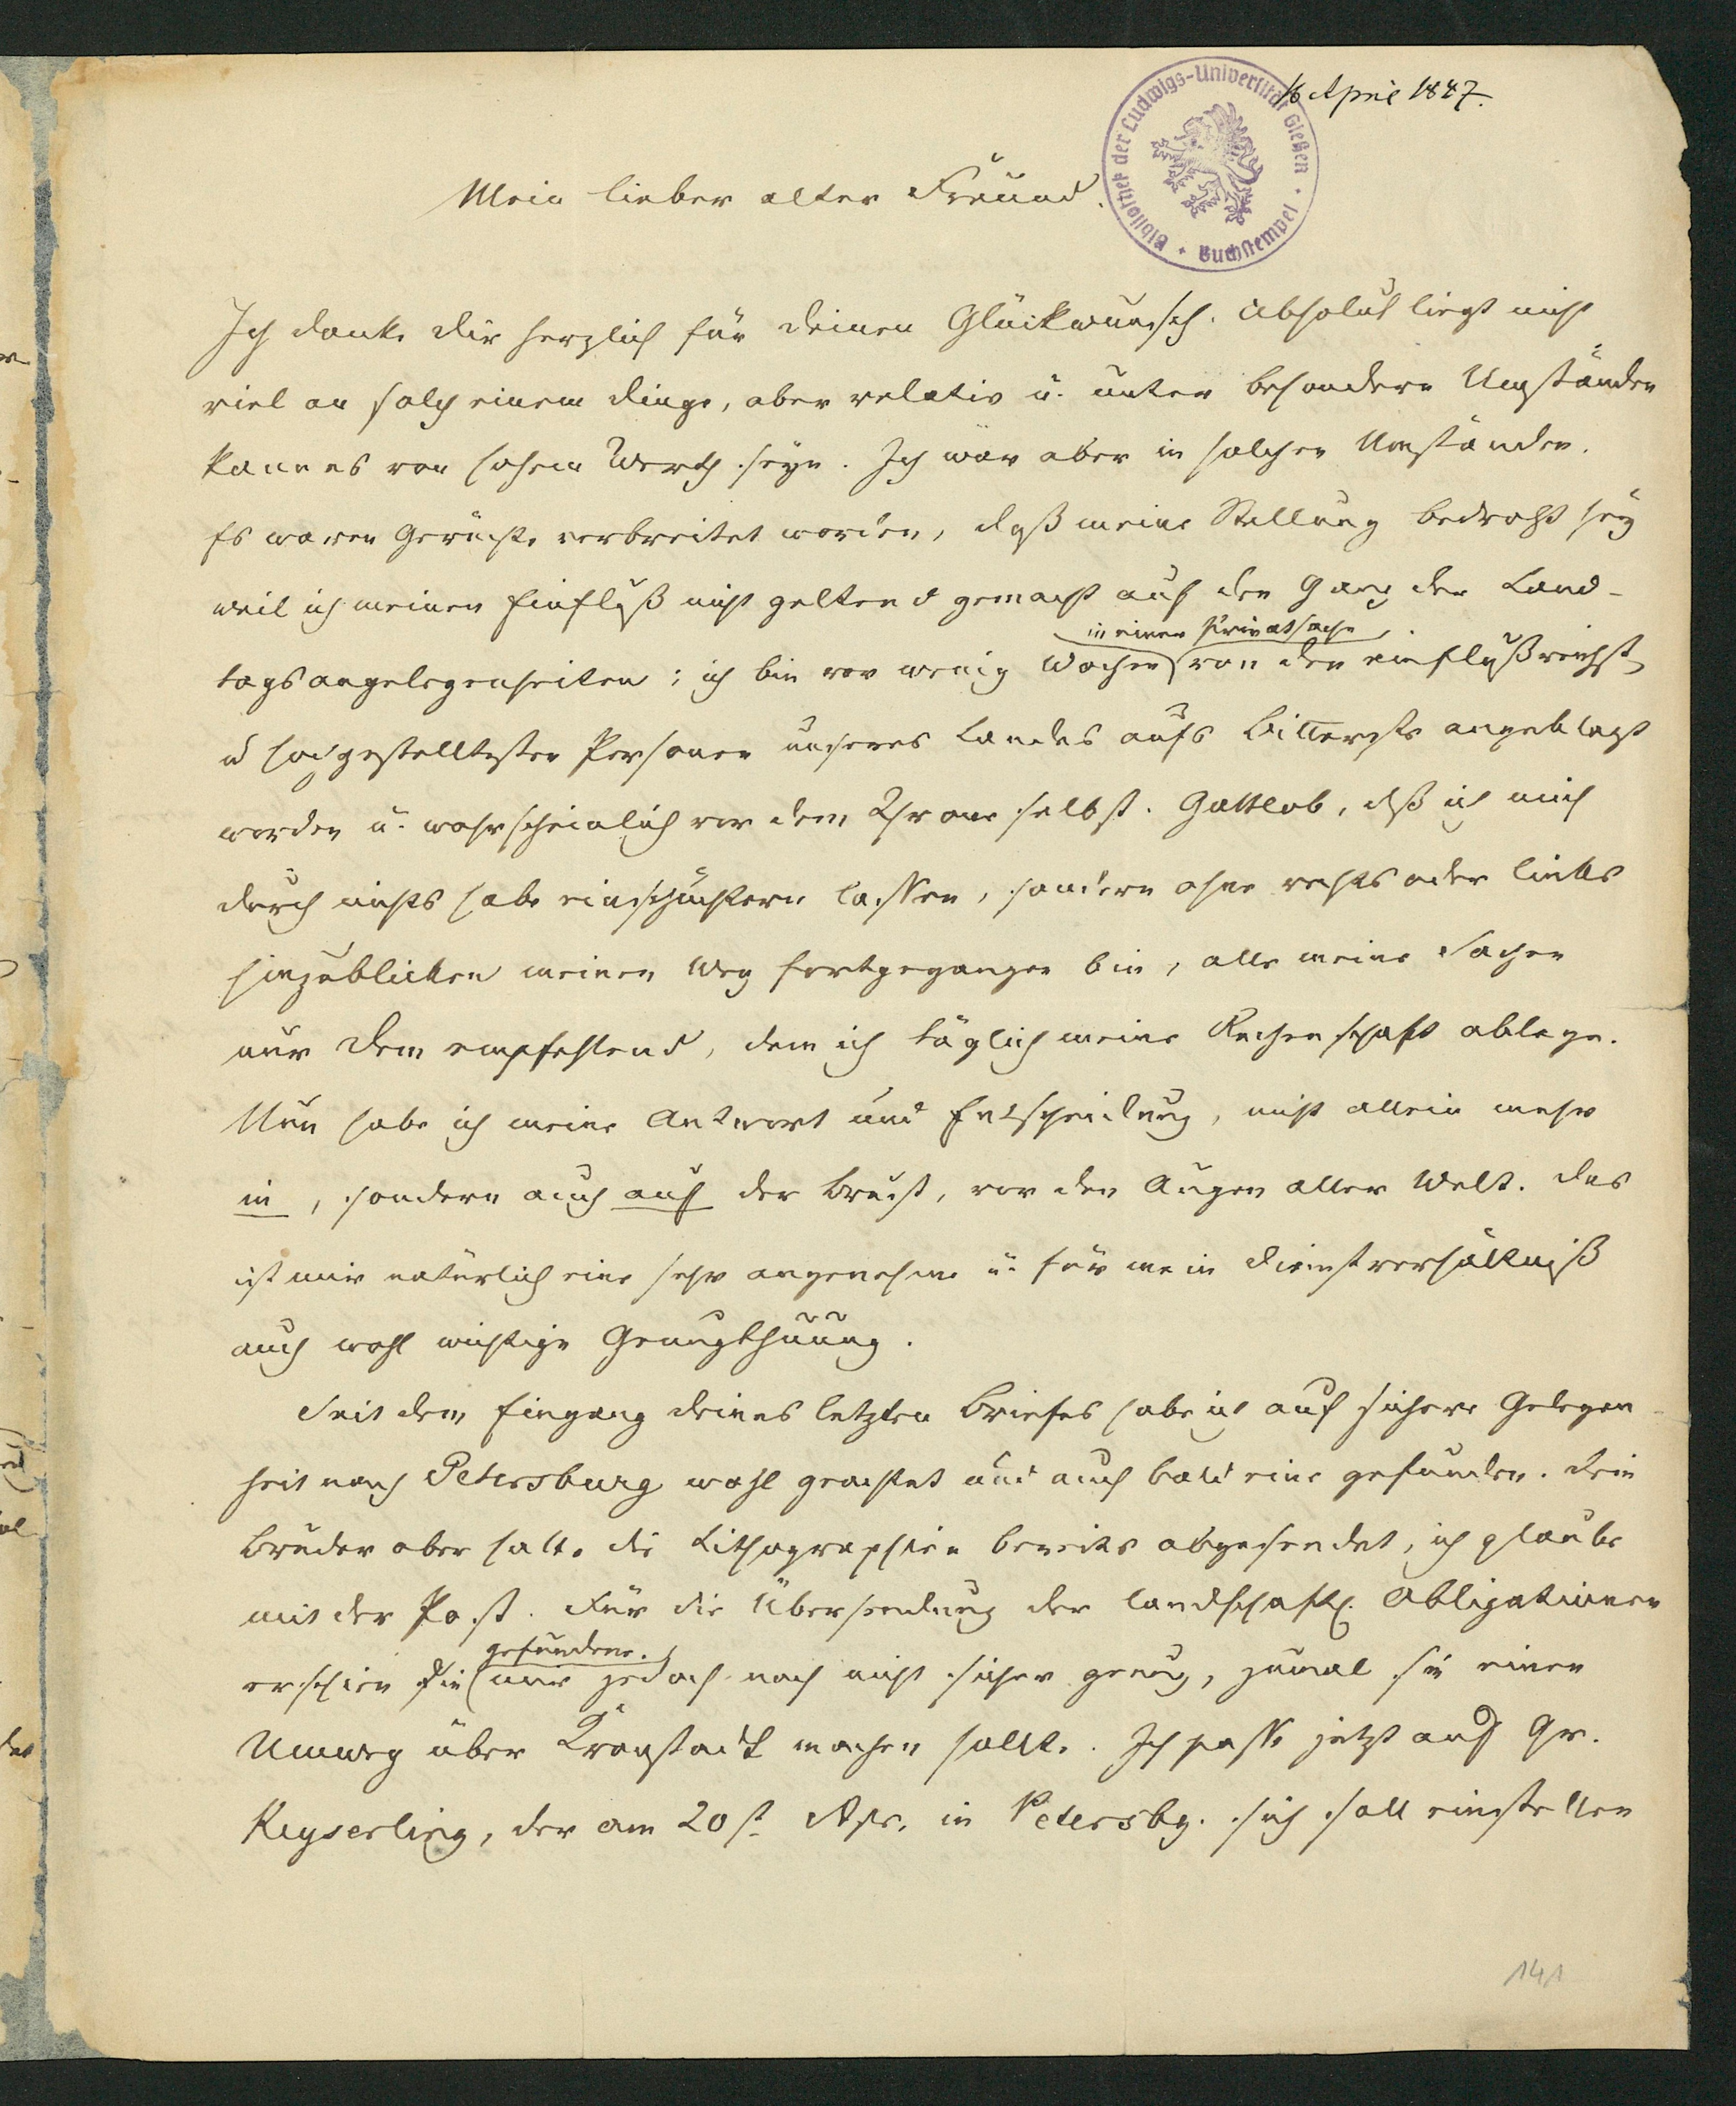 16 April 1847.
Bibliothek der Ludwigs-Universität Gießen · Buchstempel ·
Mein lieber alter Freund.
Ich danke Dir herzlich für Deinen Glückwunsch. Absolut liegt nicht
viel an solch einem Dinge, aber relativ u. unter besondern Umständen
kann es von hohem Werth seyn. Ich war aber in solchen Umständen.
Es waren Gerüchte verbreitet worden, daß meine Stellung bedroht sey
weil ich meinen Einfluß nicht geltend gemacht auf den Gang der Land-
in einer Privatsache
tagsangelegenheiten; ich bin vor wenig Wochen von den einflußreichst
u hochgestelltesten Personen unseres Landes aufs Bitterste angeklagt
worden u. wahrscheinlich vor dem Throne selbst. Gottlob, daß ich mich
durch nichts habe einschüchtern lassen, sondern ohne rechts oder links
hinzublicken meinen Weg fortgegangen bin, alle meine Sachen
nur Dem empfehlend, dem ich täglich meine Rechenschaft ablege.
Nun habe ich meine Antwort und Entscheidung, nicht allein mehr
in, sondern auch auf der Brust, vor den Augen aller Welt. Das
ist mir natürlich eine sehr angenehme u. für mein Dienstverhältniß
auch wohl wichtige Genugthuung.
Seit dem Eingang Deines letzten Briefes habe ich auf sichere Gelegen-
heit nach Petersburg wohl geachtet und auch bald eine gefunden. Dein
Bruder aber hatte die Lithographien bereits abgesendet, ich glaube
mit der Post. Für die Übersendung der landschaftl. Obligationen
gefundene
erschien die mir jedoch noch nicht sicher genug, zumal sie einen
Umweg über Kronstadt machen sollte. Ich passe jetzt auf Gr.
Keyserling, der am 20st. Apr. in Petersbg. sich soll einstellen
141